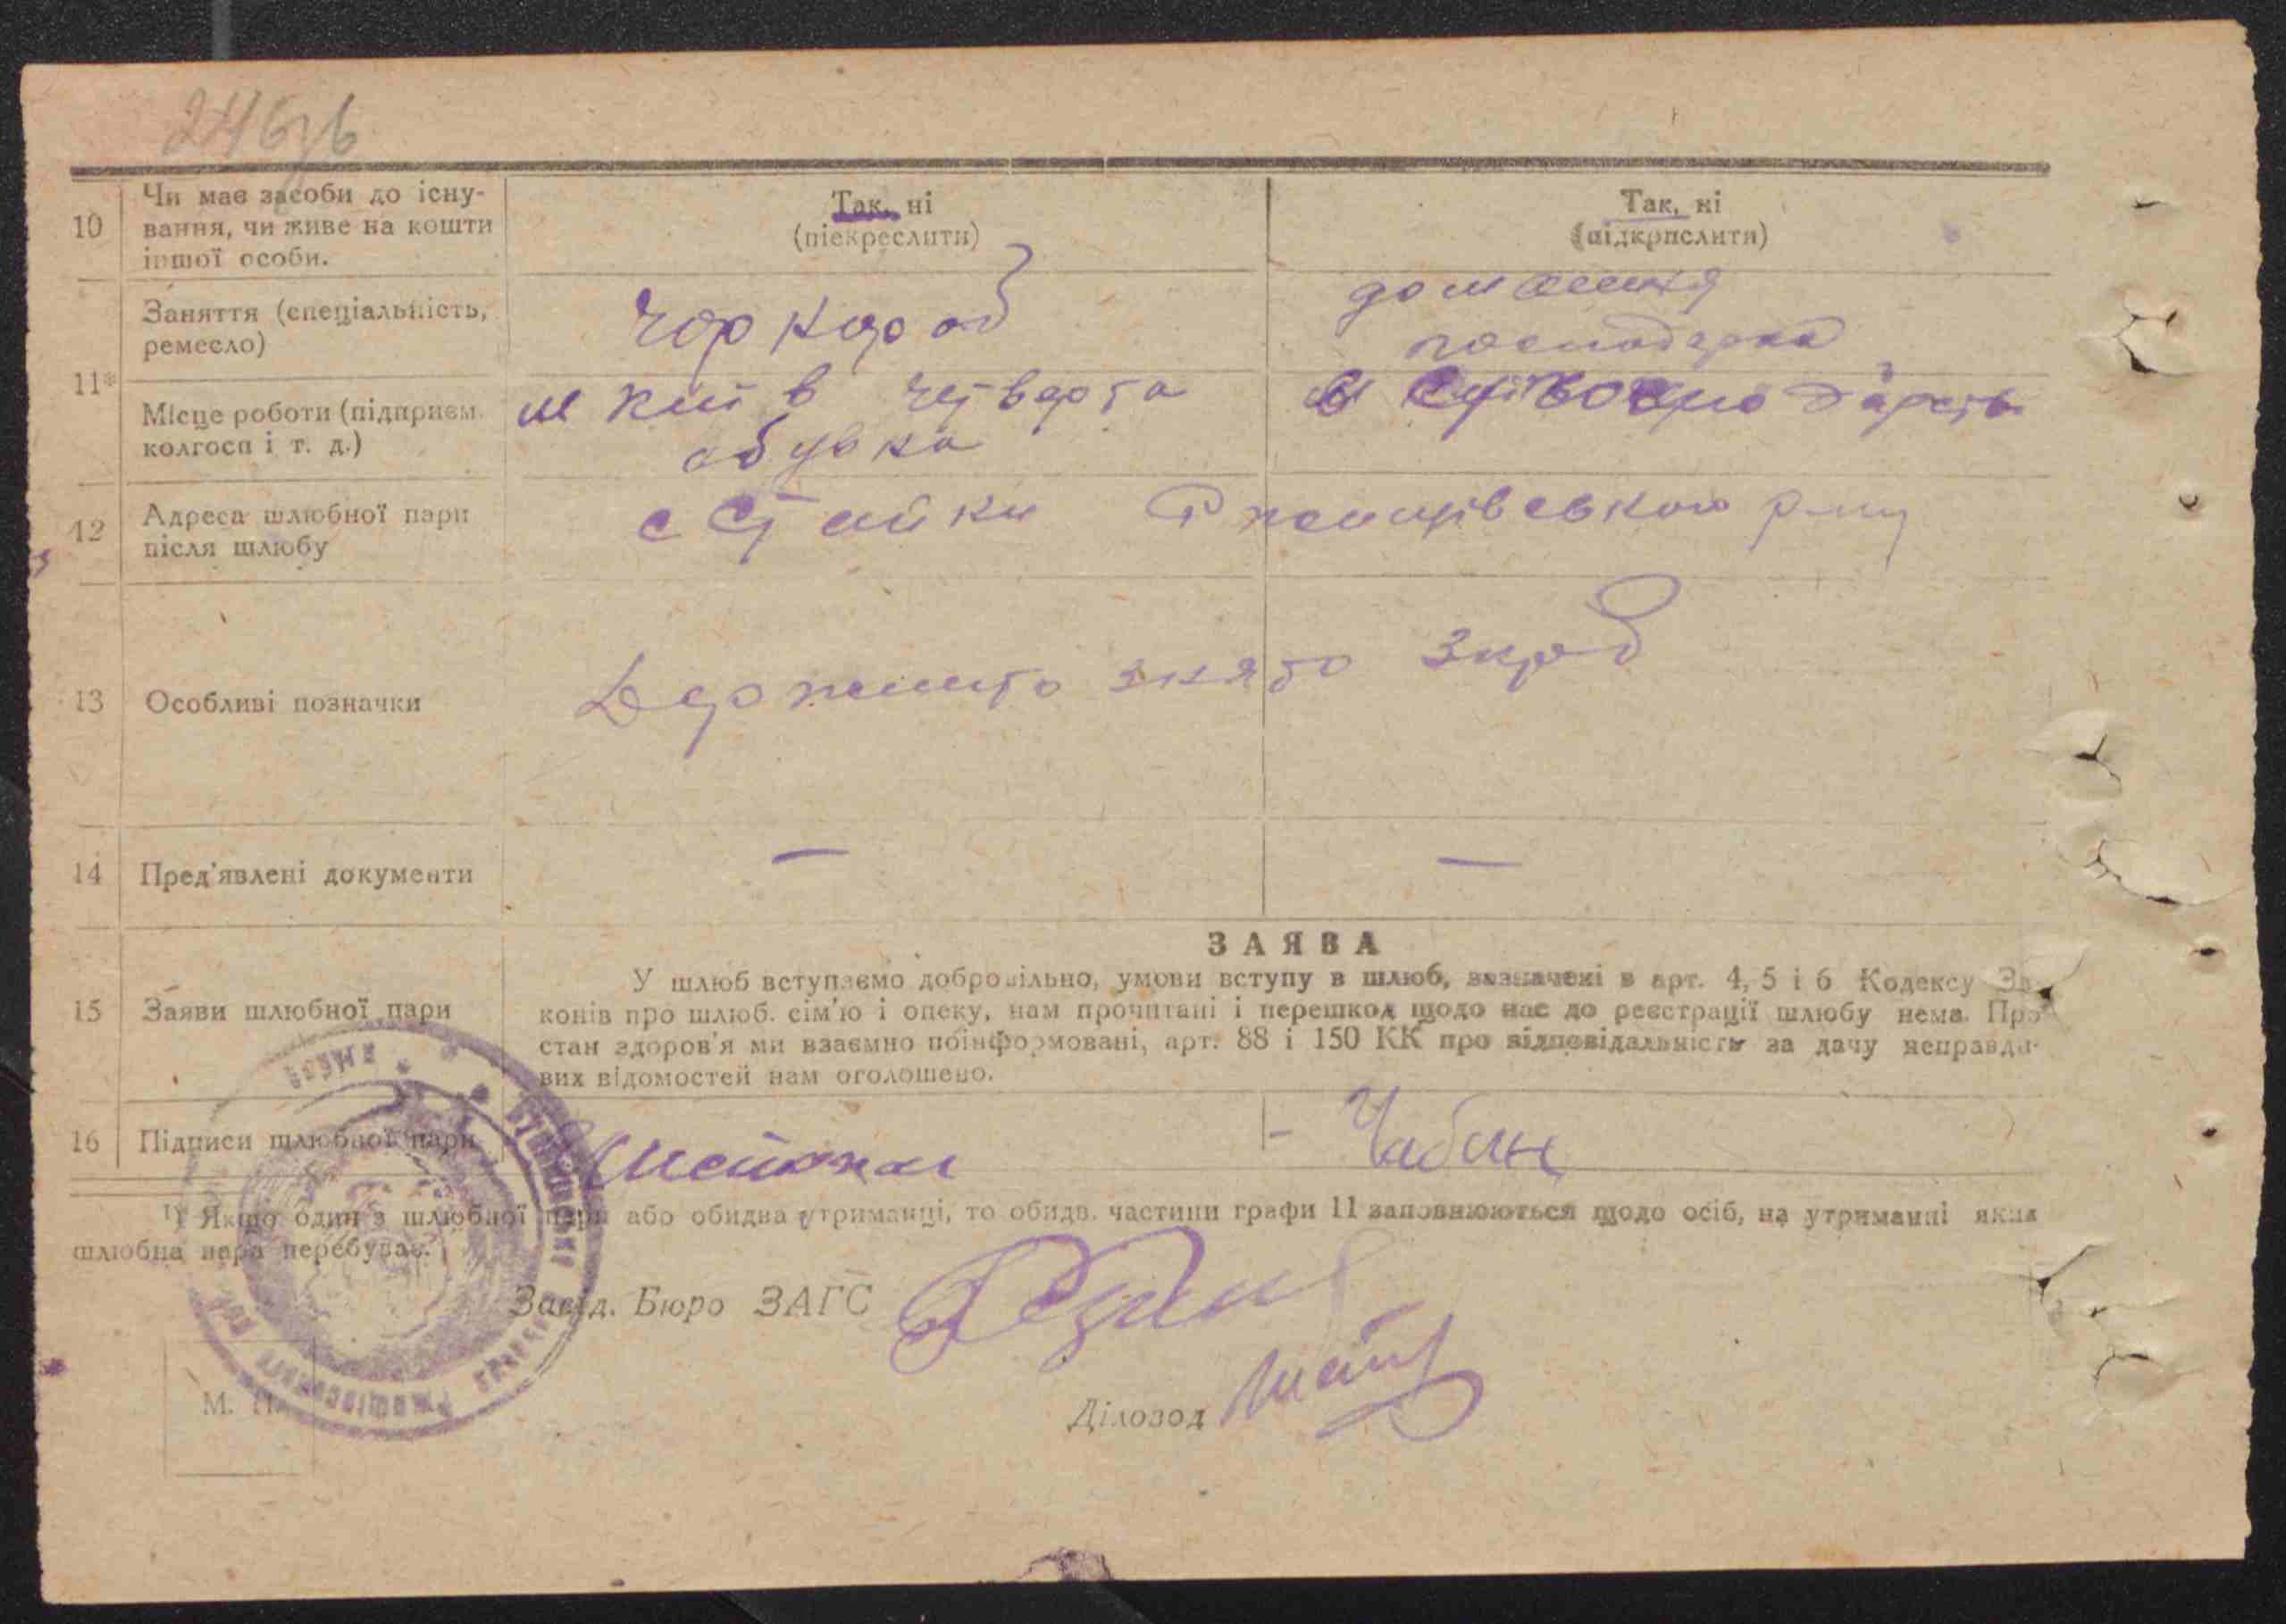 10 Чи має засоби до існу-
вання, чи живе на кошти
іншої особи.
Так, ні
(піекреслити)
Так, ні
(підкрпслити)
11* Заняття (спеціальність,
ремесло)
Чорнороб
домашня
Місце роботи (підприєм.
колгосп і т. д.)
м Київ
обувна
12 Адреса шлюбної пари
після шлюбу
с Стайки Ржищівського р-ну
13 Особливі позначки
знято
14 Пред'явлені документи
— —
15 Заяви шлюбної пари
ЗАЯВА
У шлюб вступаємо добровільно, умови вступу в шлюб, зазначені в арт. 4, 5 і 6 Кодексу За
конів про шлюб. сім'ю і опеку, нам прочитані і перешкод щодо нас до реєстрації шлюбу нема. Про
стан здоров'я ми взаємно поінформовані, арт. 88 і 150 КК про відповідальність за дачу неправди-
вих відомостей нам оголошено.
16 Підписи шлюбної пари
Чабан
1) Якщо один з шлюбної пари або обидва утриманці, то обидв. частини графи 11 заповнюються щодо осіб, на утриманні яких
шлюбна пара перебуває.
Завід. Бюро ЗАГС
Діловод
М. П.